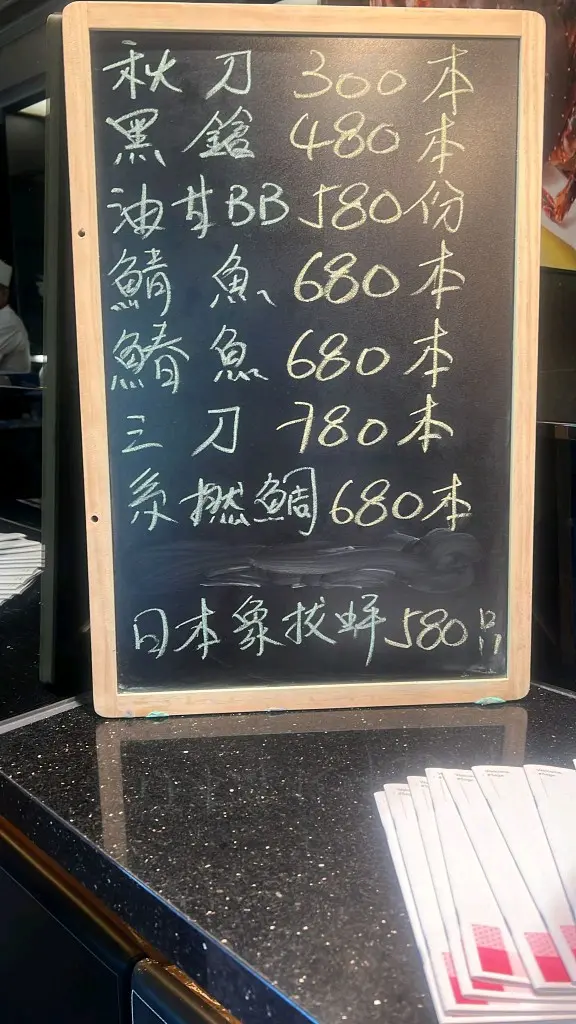 秋刀 300本
黑鎗 480本
油甘BB 580份
鯖魚 680本
鰆魚 680本
三刀 780本
糸撚鯛 680本
日本象拔蚌 580